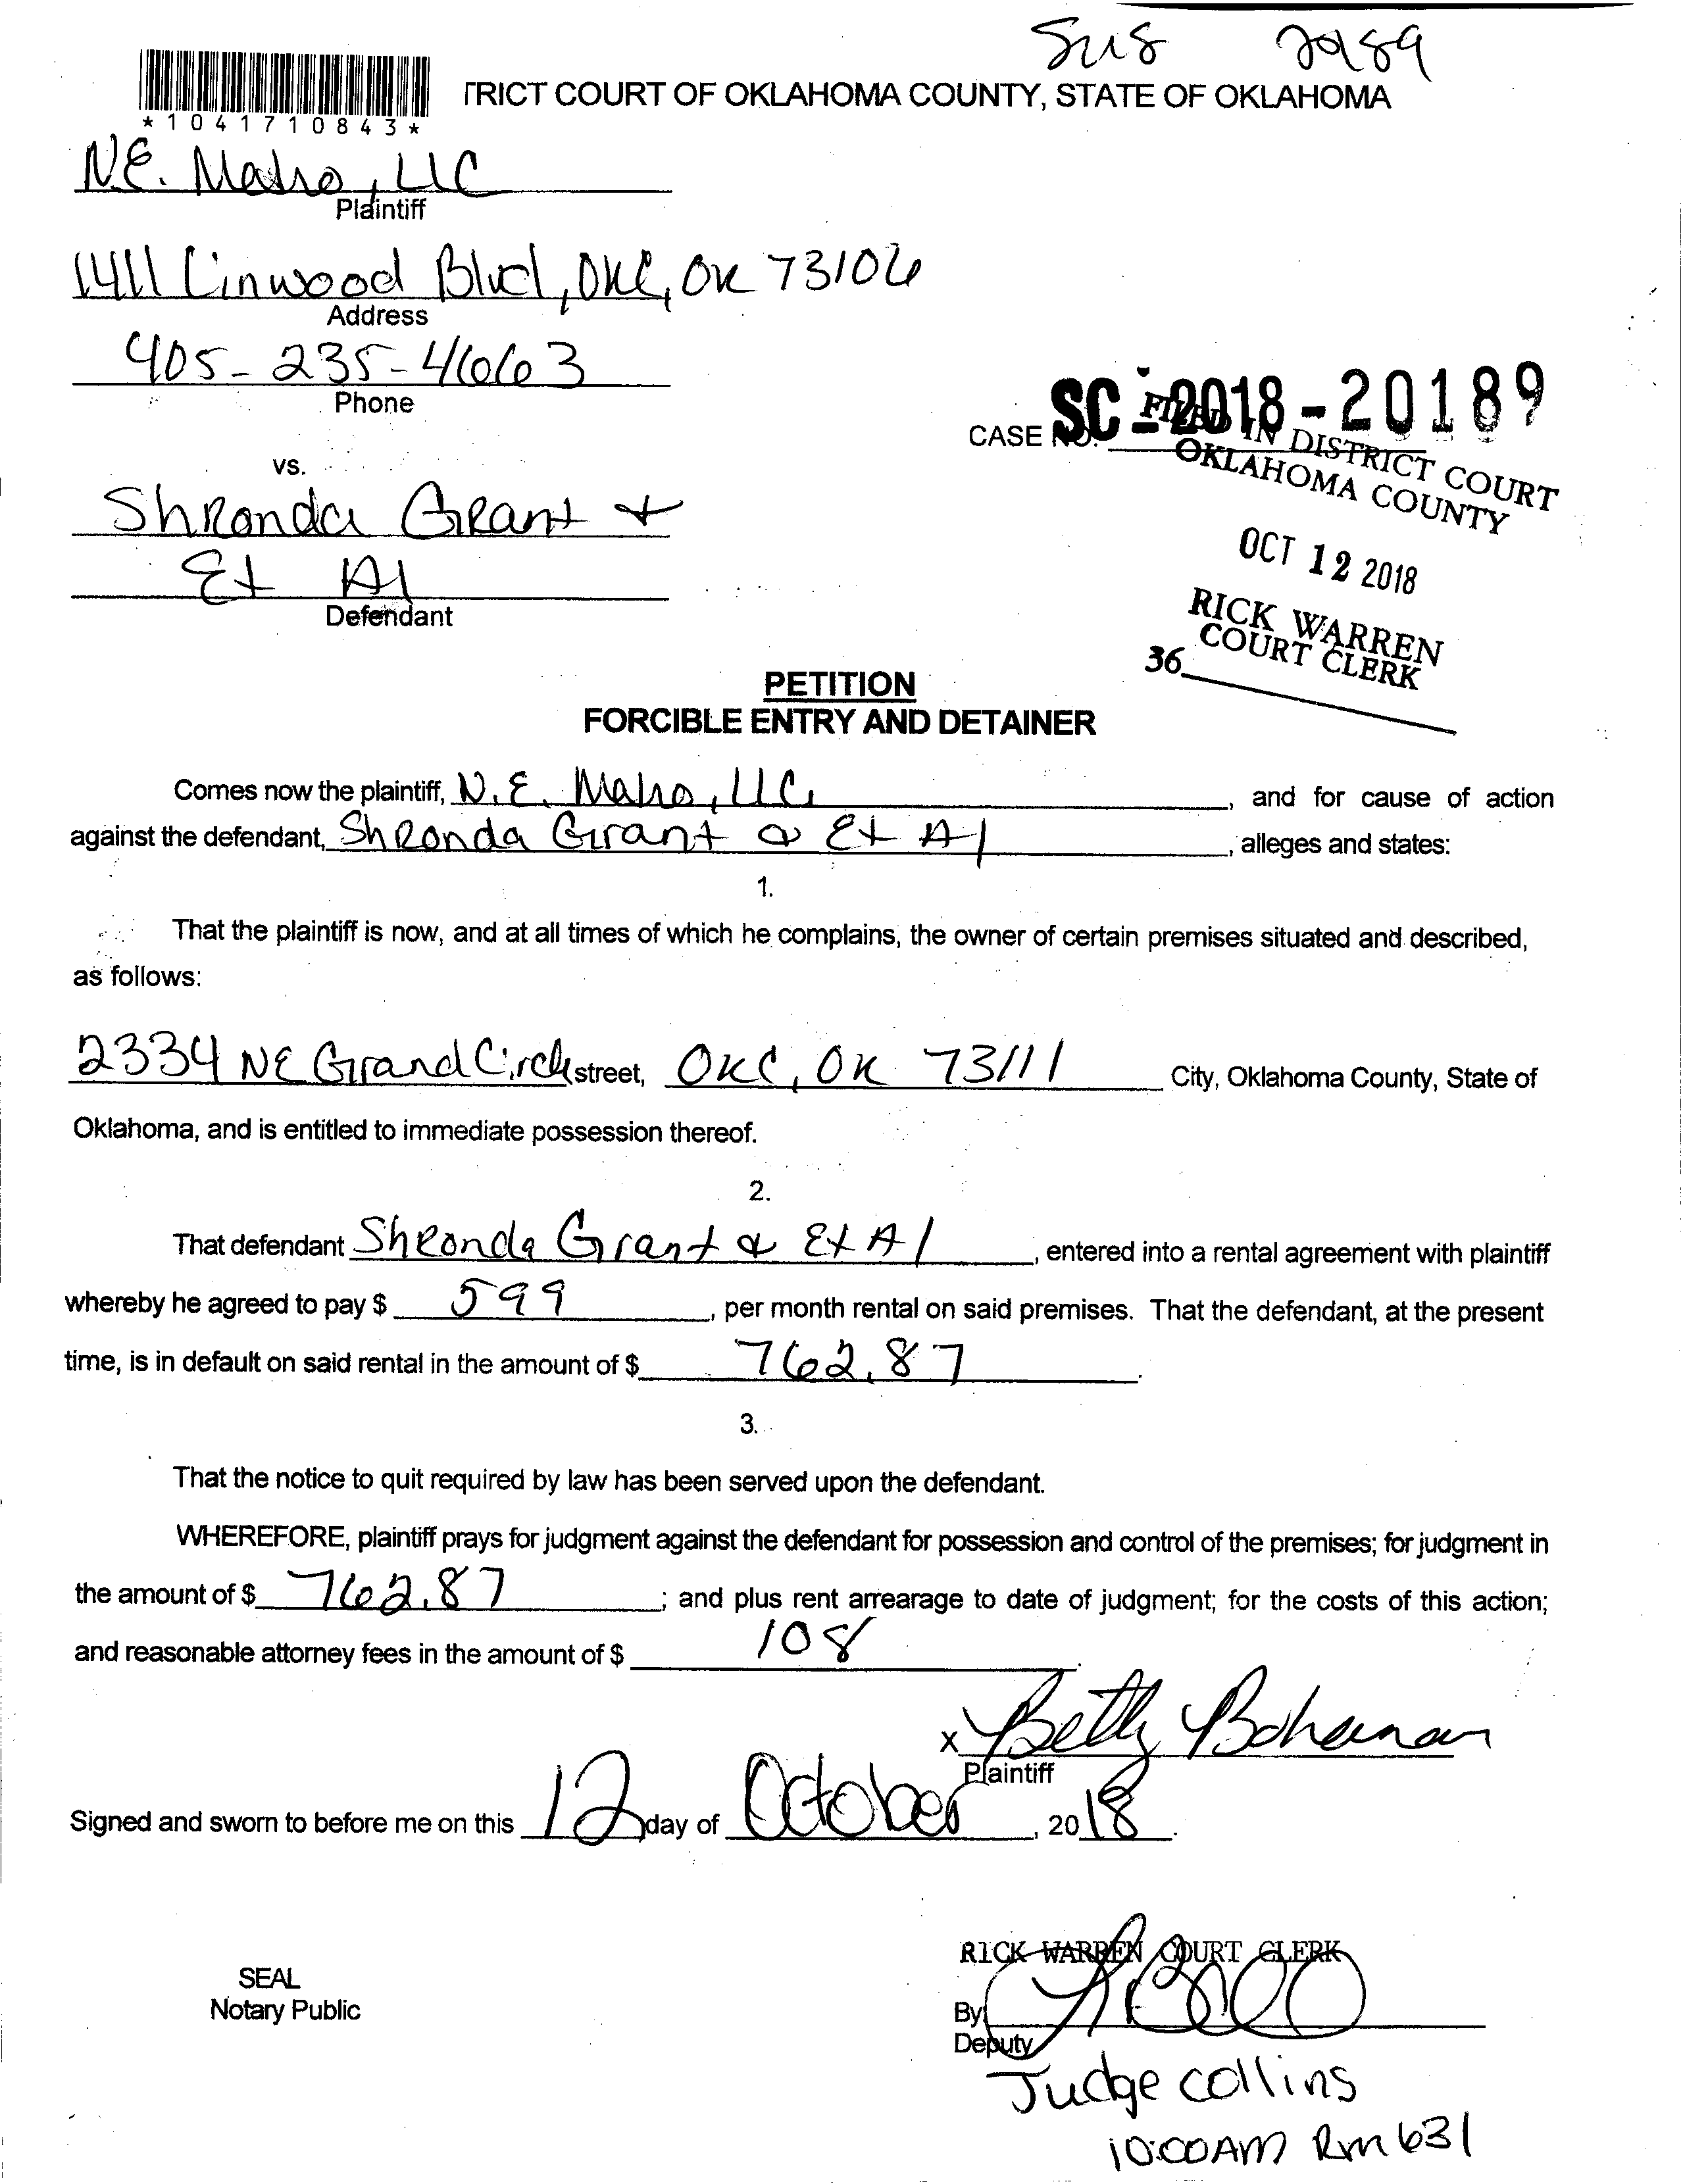 2989
TRICT COURT OF OKLAHOMA COUNTY, STATE OF OKLAHOMA
*1041710843*
N.E. Mahro, LLC
Plaintiff
1411 Linwood Blvd, OKC, OK 73106
Address
405-235-4663
Phone
CASE NO. SC-2018-20189
FILED IN DISTRICT COURT
OKLAHOMA COUNTY
vs.
Shronda Grant &
Et Al
Defendant
OCT 12 2018
RICK WARREN
COURT CLERK
36
PETITION
FORCIBLE ENTRY AND DETAINER
Comes now the plaintiff, N.E. Mahro, LLC, and for cause of action
against the defendant, Shronda Grant & Et Al, alleges and states:
1.
That the plaintiff is now, and at all times of which he complains, the owner of certain premises situated and described,
as follows:
2334 NE Grand Circle street, OKC, OK 73111 City, Oklahoma County, State of
Oklahoma, and is entitled to immediate possession thereof.
2.
That defendant Shronda Grant & Et Al, entered into a rental agreement with plaintiff
whereby he agreed to pay $ 599, per month rental on said premises. That the defendant, at the present
time, is in default on said rental in the amount of $ 762.87.
3.
That the notice to quit required by law has been served upon the defendant.
WHEREFORE, plaintiff prays for judgment against the defendant for possession and control of the premises; for judgment in
the amount of $ 762.87; and plus rent arrearage to date of judgment; for the costs of this action;
and reasonable attorney fees in the amount of $ 108.
x Betty Bohanan
Plaintiff
Signed and sworn to before me on this 12 day of October, 2018.
RICK WARREN COURT CLERK
SEAL
Notary Public
By
Deputy
Judge Collins
10:00AM Rm 631